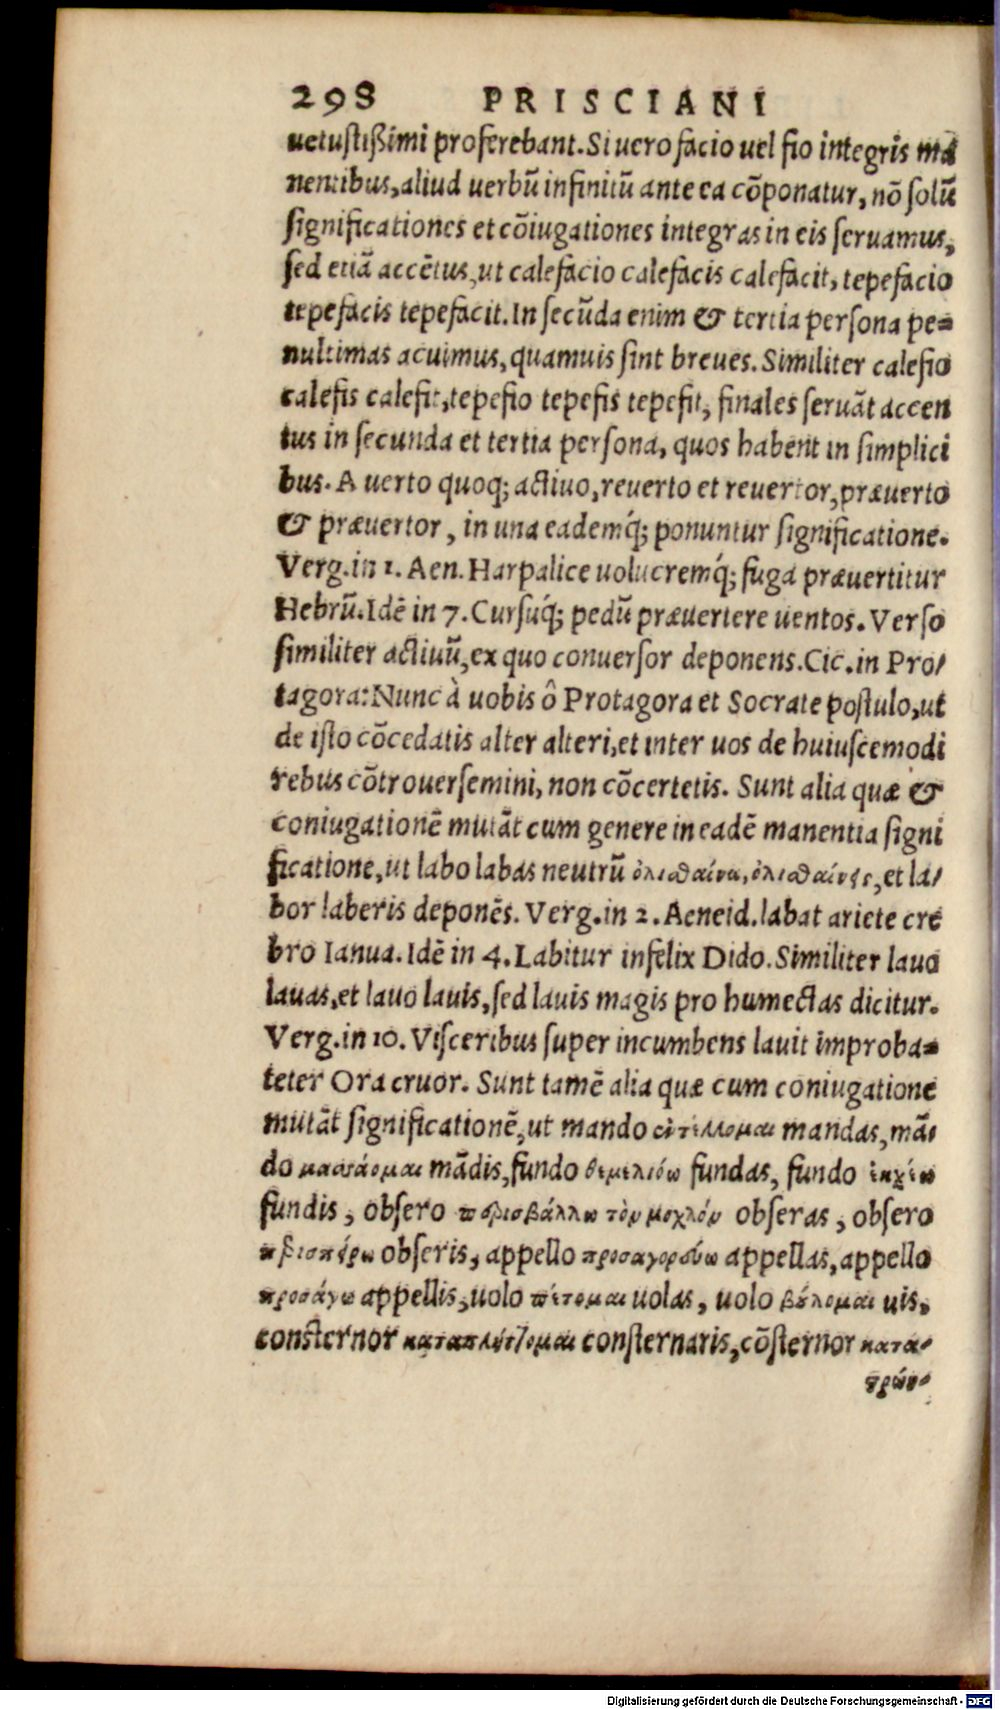 298 PRISCIANI
uetustißimi proferebant. Si uero facio uel fio integris ma
nentibus, aliud uerbũ infinitũ ante ea cõponatur, nõ solũ
significationes et cõiugationes integras in eis seruamus,
sed etiã accẽtus, ut calefacio calefacis calefacit, tepefacio
tepefacis tepefacit. In secũda enim & tertia persona pe=
nultimas acuimus, quamuis sint breues. Similiter calefio
calefis calefit, tepefio tepefis tepefit, finales seruãt accen
tus in secunda et tertia persona, quos habent in simplici
bus. A uerto quoq; actiuo, reuerto et reuertor, præuerto
& præuertor, in una eademq́; ponuntur significatione.
Verg. in 1. Aen. Harpalice uolucremq́; fuga præuertitur
Hebrũ. Idẽ in 7. Cursuq́; pedũ præuertere uentos. Verso
similiter actiuũ, ex quo conuersor deponens. Cic. in Pro/
tagora: Nunc à uobis ô Protagora et Socrate postulo, ut
de isto cõcedatis alter alteri, et inter uos de huiuscemodi
rebus cõtrouersemini, non cõcertetis. Sunt alia quæ &
coniugationẽ mutãt cum genere in eadẽ manentia signi
ficatione, ut labo labas neutrũ ὀλισθαίνω, ὀλισθαίνεις, et la/
bor laberis deponẽs. Verg. in 2. Aeneid. labat ariete cre
bro Ianua. Idẽ in 4. Labitur infelix Dido. Similiter lauo
lauas, et lauo lauis, sed lauis magis pro humectas dicitur.
Verg. in 10. Visceribus super incumbens lauit improba=
teter Ora cruor. Sunt tamẽ alia quæ cum coniugatione
mutãt significationẽ, ut mando ἐντέλλομαι mandas, mã/
do μασάομαι mãdis, fundo θεμελιόω fundas, fundo ἐκχέω
fundis, obsero περιβάλλω τὸν μοχλόν obseras, obsero
obseris, appello προσαγορεύω appellas, appello
προσάγω appellis, uolo πέτομαι uolas, uolo βούλομαι uis,
consternor καταπλήττομαι consternaris, cõsternor κατα/